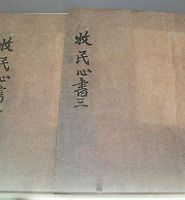 牧民心書三
牧民心書